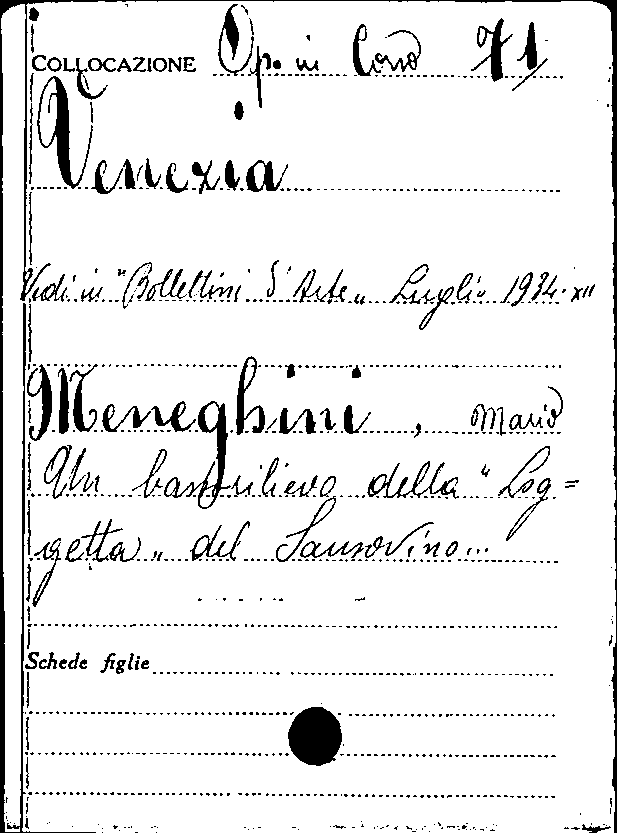 COLLOCAZIONE Op. in Corso 71
Venezia
Vedi in "Bollettini d'Arte„ Luglio 1934-XII
Meneghini, Mario
Un bassorilievo della "Log=
getta„ del Sansovino...
Schede figlie